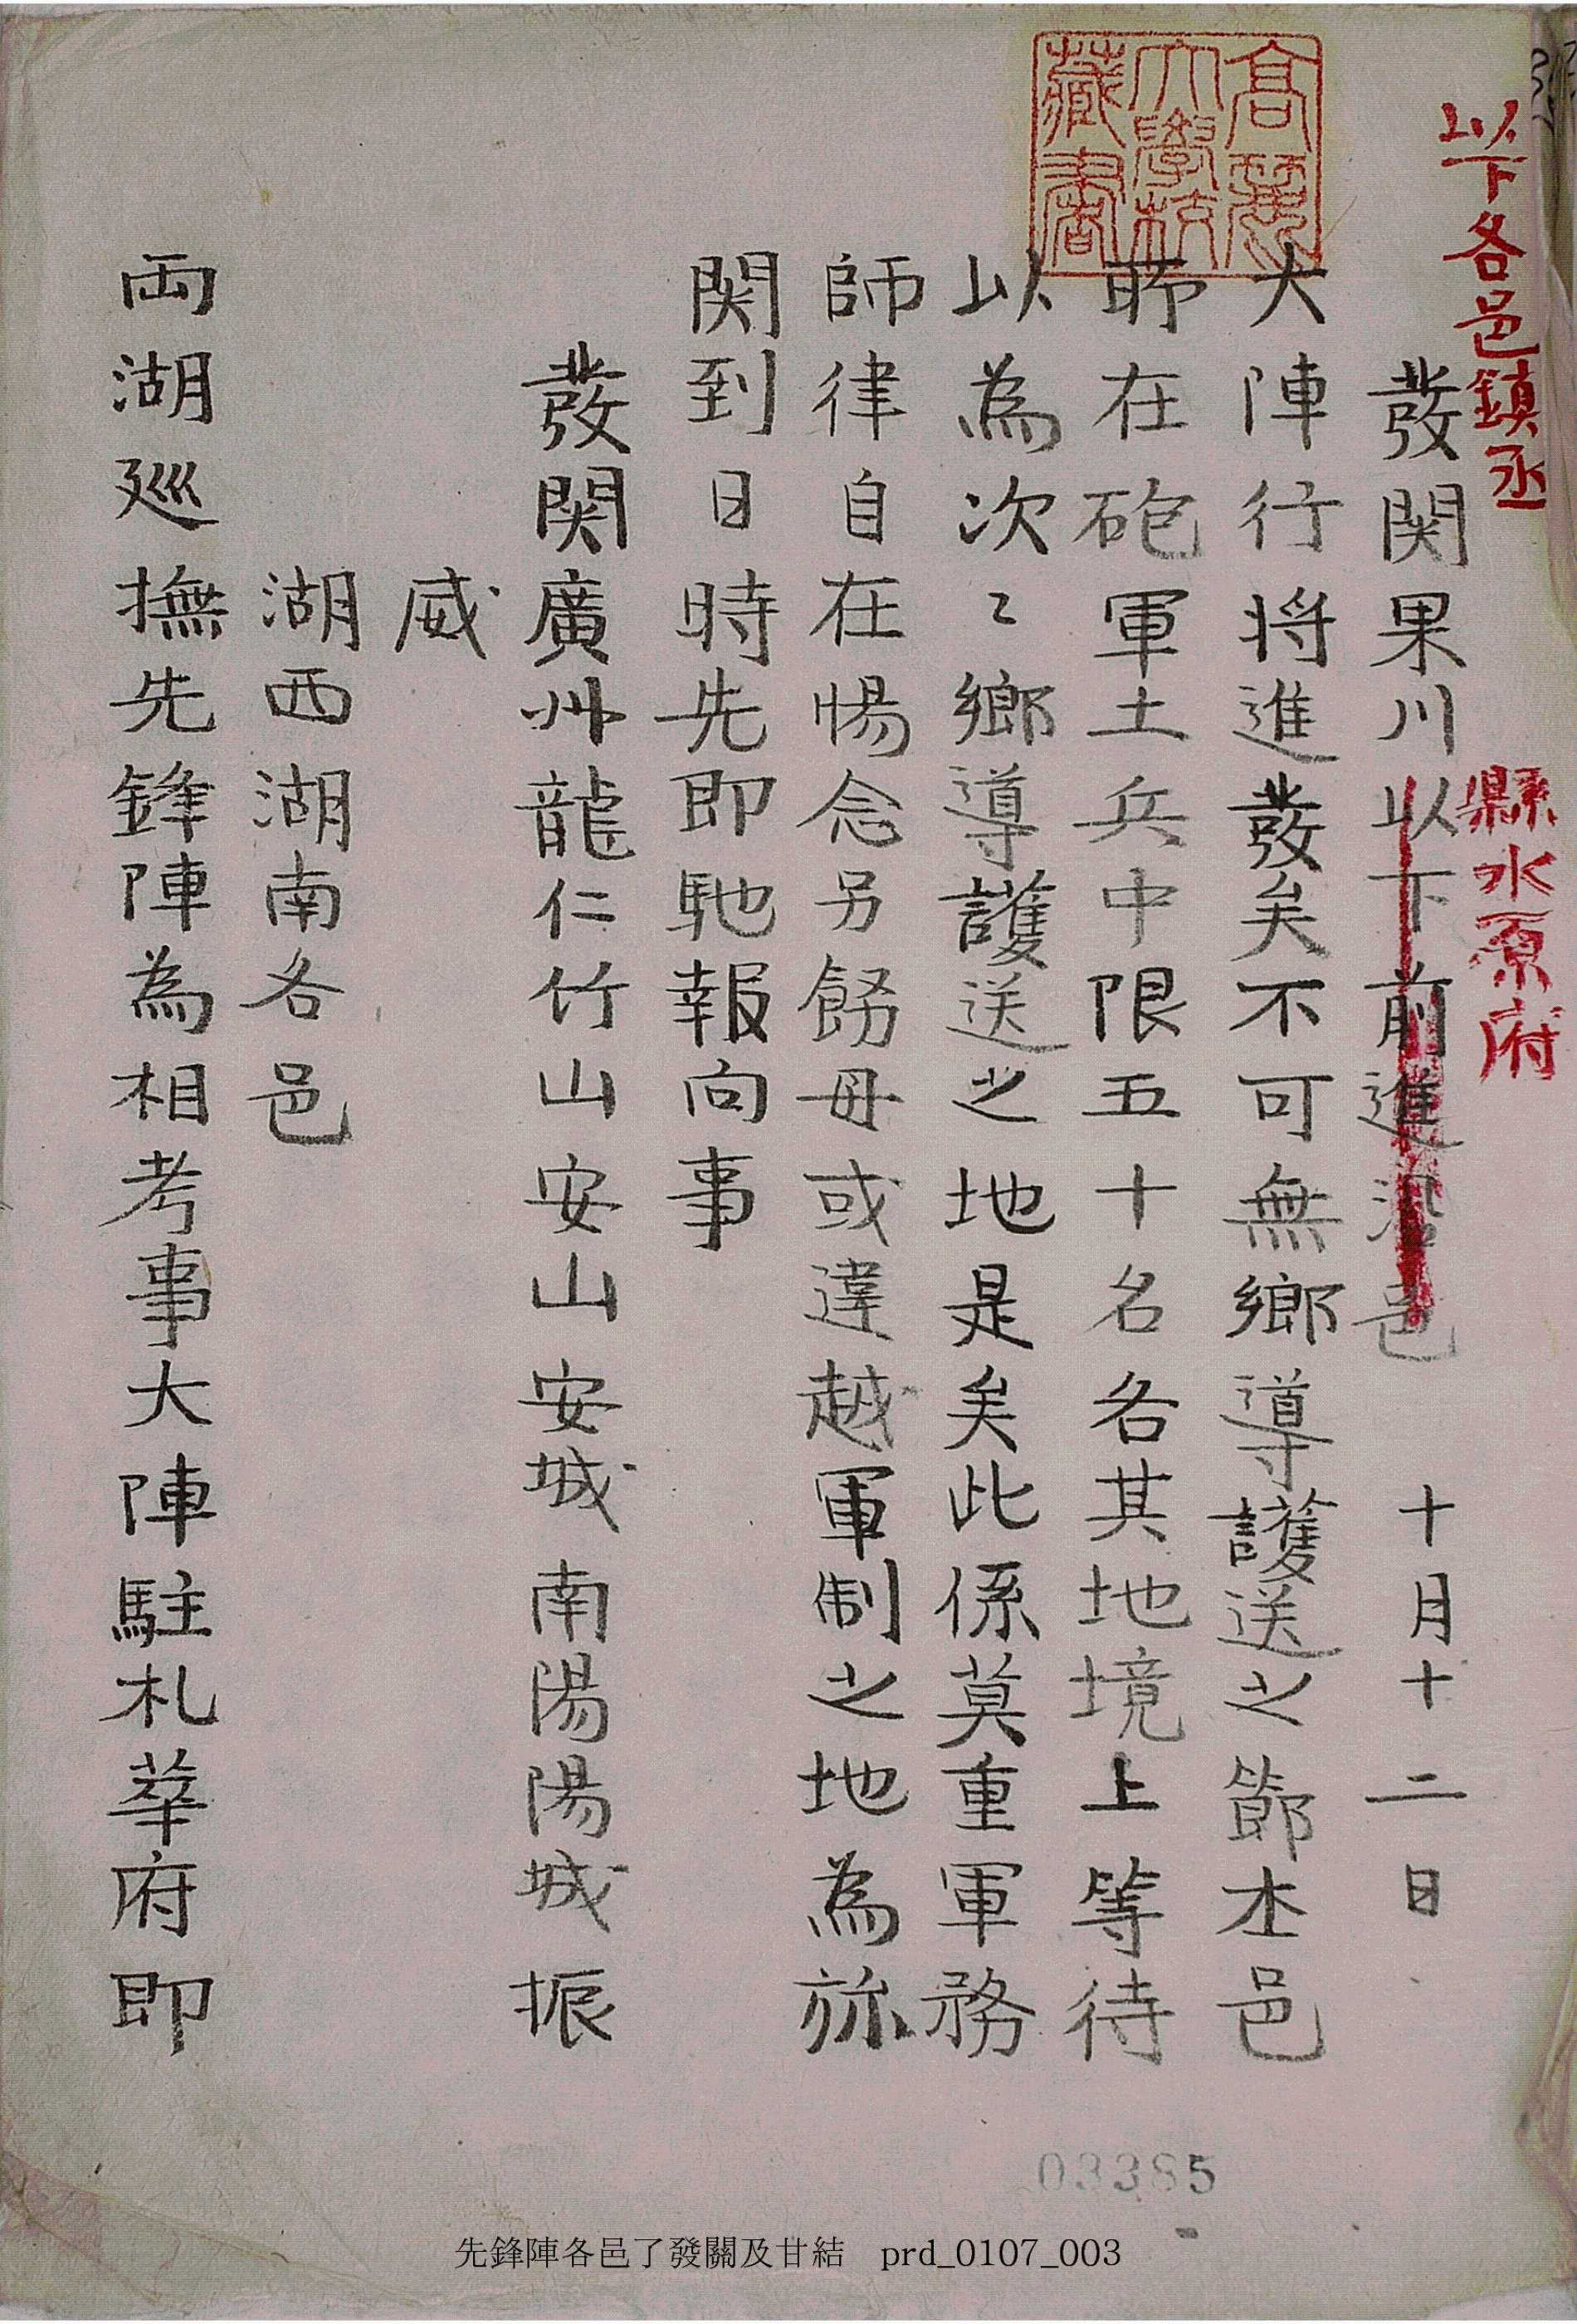 以下各邑鎭丞
縣水原府
發関果川以下前進沿邑 十月十二日
大陣行将進發矣不可無鄉導護送之節本邑
所在砲軍土兵中限五十名各其地境上等待
以為次〻鄉導護送之地是矣此係莫重軍務
師律自在惕念另飭毋或違越軍制之地為旀
関到日時先即馳報向事
發関廣州龍仁竹山安山安城南陽陽城振
威
湖西湖南各邑
両湖廵撫先鋒陣為相考事大陣駐札莘府即
高麗大學校藏書
03385
先鋒陣各邑了發關及甘結 prd_0107_003